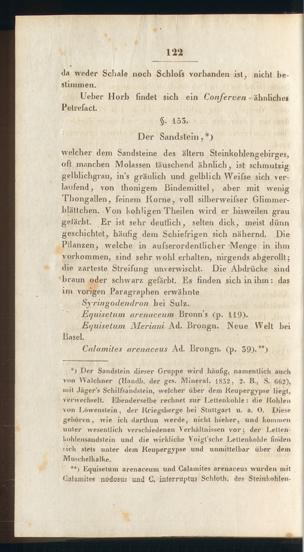 122
da weder Schale noch Schloſs vorhanden ist, nicht be-
stimmen.
Ueber Horb findet sich ein Conferven-ähnliches
Petrefact.
§. 153.
Der Sandstein,*)
welcher dem Sandsteine des ältern Steinkohlengebirges,
oft manchen Molassen täuschend ähnlich, ist schmutzig
gelblichgrau, in's gräulich und gelblich Weiſse sich ver-
laufend, von thonigem Bindemittel, aber mit wenig
Thongallen, feinem Korne, voll silberweiſser Glimmer-
blättchen. Von kohligen Theilen wird er bisweilen grau
gefärbt. Er ist sehr deutlich, selten dick, meist dünn
geschichtet, häufig dem Schiefrigen sich nähernd. Die
Pflanzen, welche in auſserordentlicher Menge in ihm
vorkommen, sind sehr wohl erhalten, nirgends abgerollt;
die zarteste Streifung unverwischt. Die Abdrücke sind
braun oder schwarz gefärbt. Es finden sich in ihm: das
im vorigen Paragraphen erwähnte
Syringodendron bei Sulz.
Equisetum arenaceum Bronn's (p. 119).
Equisetum Meriani Ad. Brongn. Neue Welt bei
Basel.
Calamites arenaceus Ad. Brongn. (p. 39).**)
*) Der Sandstein dieser Gruppe wird häufig, namentlich auch
von Walchner (Handb. der ges. Mineral. 1832, 2. B., S. 662),
mit Jäger's Schilfsandstein, welcher über dem Keupergypse liegt,
verwechselt. Ebenderselbe rechnet zur Lettenkohle: die Kohlen
von Löwenstein, der Kriegsberge bei Stuttgart u. a. O. Diese
gehören, wie ich darthun werde, nicht hieher, und kommen
unter wesentlich verschiedenen Verhältnissen vor; der Letten-
kohlensandstein und die wirkliche Voigt'sche Lettenkohle finden
sich stets unter dem Keupergypse und unmittelbar über dem
Muschelkalke.
**) Equisetum arenaceum und Calamites arenaceus wurden mit
Calamites nodosus und C. interruptus Schloth. des Steinkohlen-